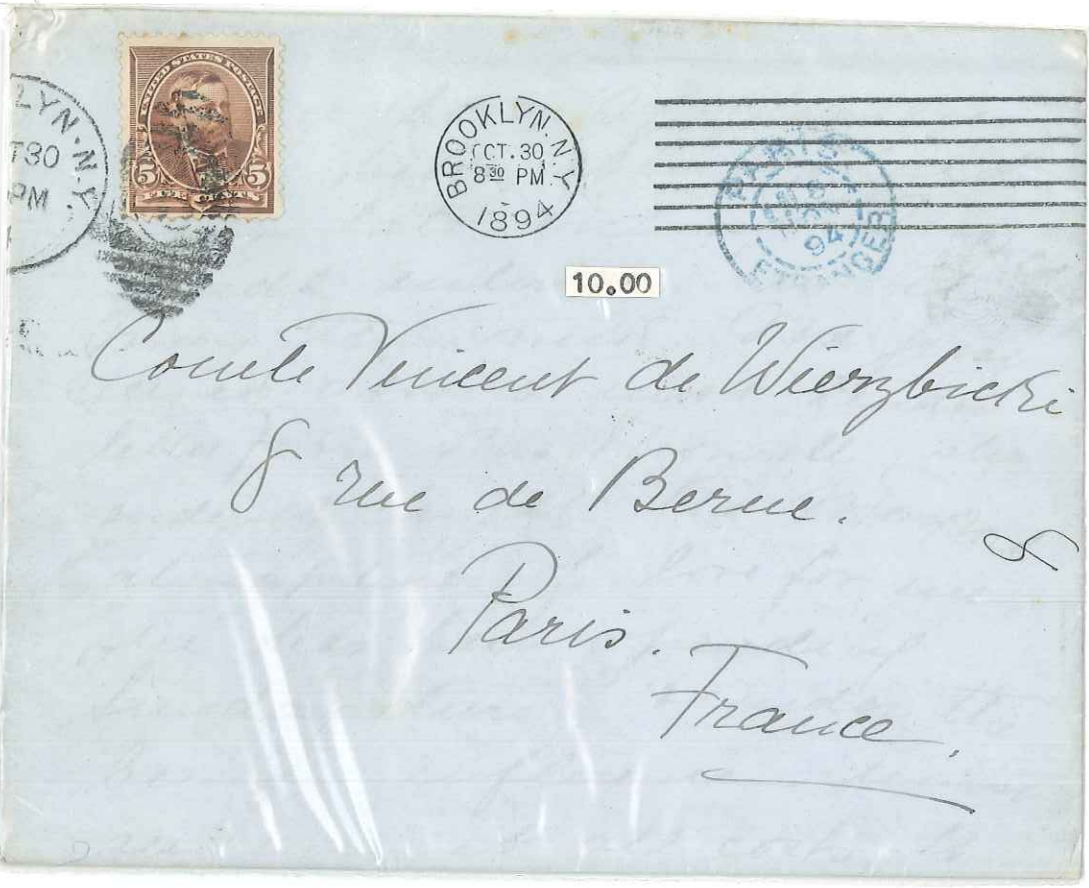 LYN. N.Y.
T 30
PM
UNITED STATES POSTAGE
5 5
BROOKLYN. N.Y.
OCT. 30
8 30 PM
1894
PARIS
94
ETRANGER
10.00
Comte Vincent de Wierzbicki
8 rue de Berne.
Paris.
France.